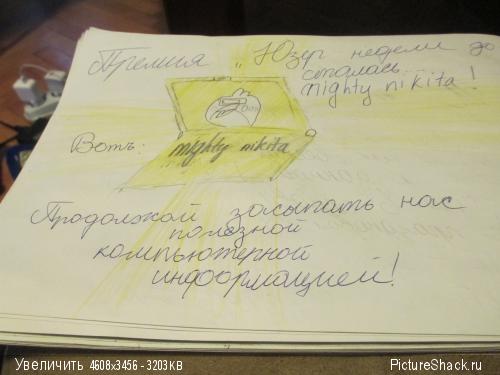 Премия „Юзер недели до
сталась
mighty nikita!
Вотъ:
mighty nikita
Продолжай засыпать нас
полезной
компьютерной
информацией!
Увеличить 4608x3456 - 3203KB
PictureShack.ru